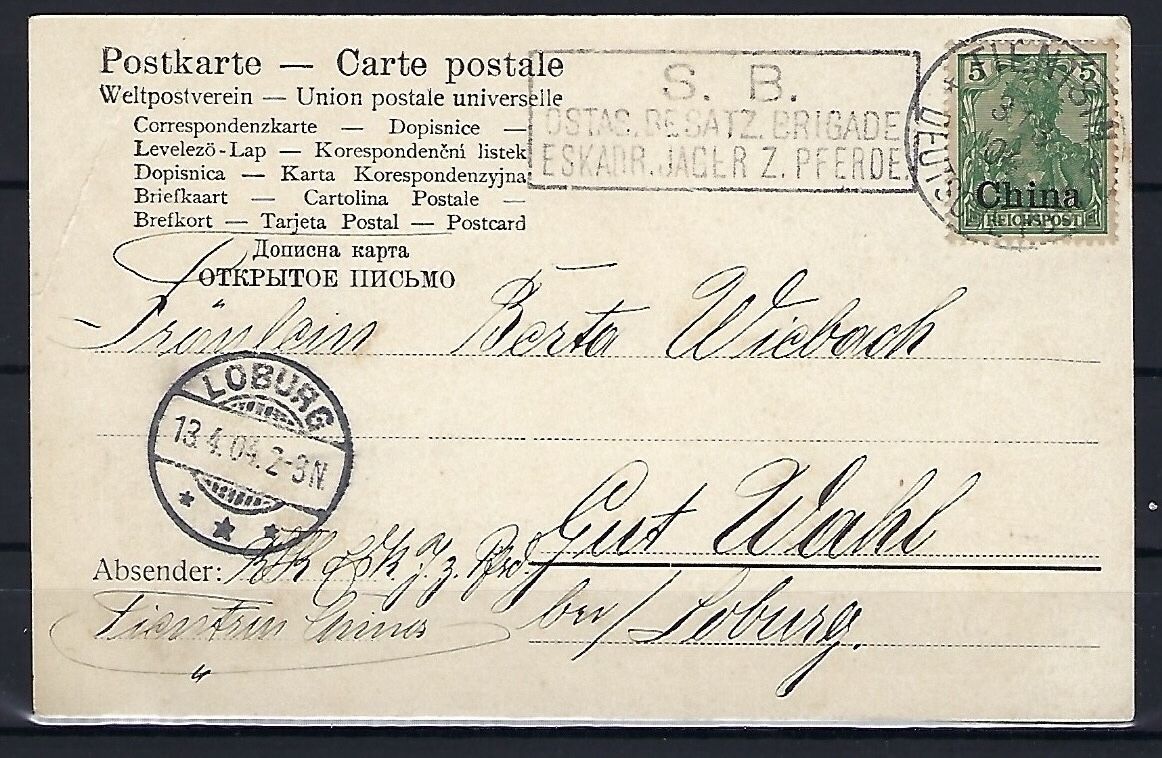 Postkarte — Carte postale
Weltpostverein — Union postale universelle
Correspondenzkarte — Dopisnice —
Levelező-Lap — Korespondenční listek
Dopisnica — Karta Korespondenzyjna
Briefkaart — Cartolina Postale —
Brefkort — Tarjeta Postal — Postcard
Дописна карта
ОТКРЫТОЕ ПИСЬМО
S. B.
OSTAS. BESATZ. BRIGADE
ESKADR. JAGER Z. PFERDE.
TIENTSIN
5 5
China
REICHSPOST
Fräulein Berta Wiebach
LOBURG
13.4.04.2-3N
Gut Wahl
Absender: J. z. Pfd.
bei/ Loburg.
Tientsin China